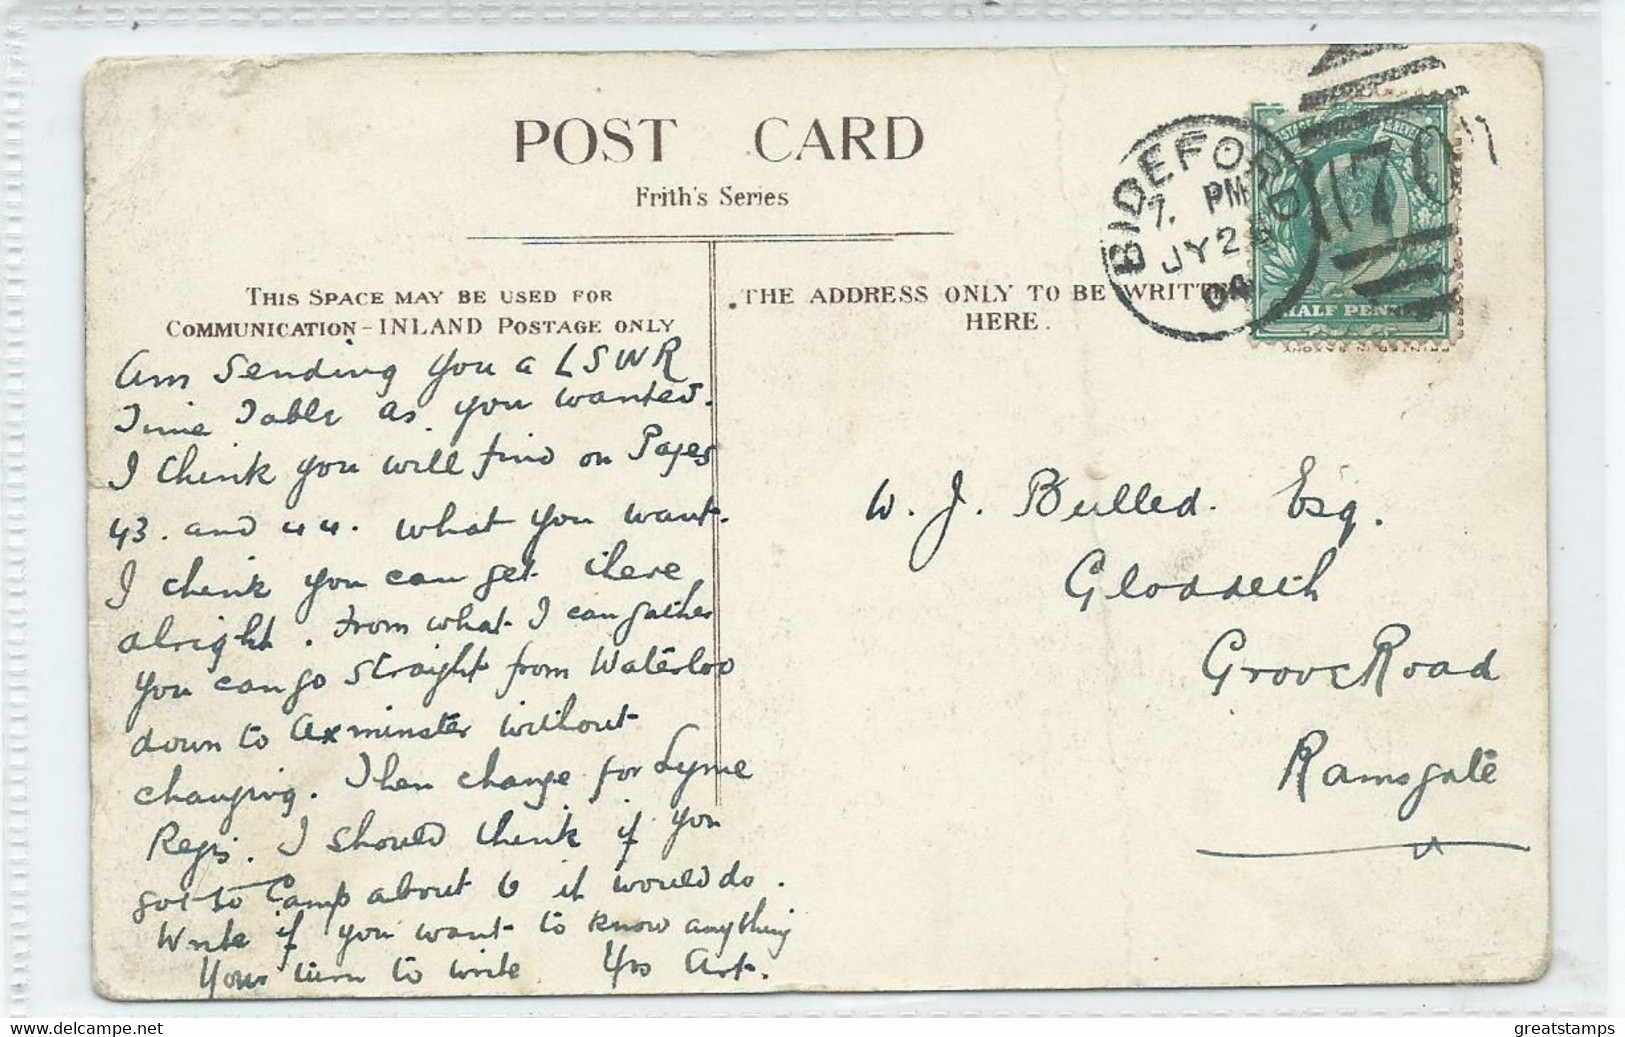 POST CARD
Frith's Series
THIS SPACE MAY BE USED FOR
COMMUNICATION - INLAND POSTAGE ONLY
THE ADDRESS ONLY TO BE WRITTEN
HERE.
BIDEFORD
7. PM
JY 2
04
170
HALF PENNY
Am sending you a LSWR
Time Table as you wanted.
I think you will find on Pages
43. and 44. what you want.
I think you can get there
alright. From what I can gather
you can go straight from Waterloo
down to Axminster without
changing. Then change for Lyme
Regis. I should think if you
got to Camp about 6 it would do.
Write if you want to know anything
Your turn to write Yrs Art.
W. J. Bulled. Esq.
Gloddeth
Grove Road
Ramsgate
www.delcampe.net
greatstamps